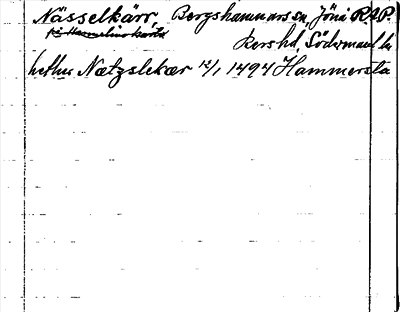 Nässelkärr, Bergshammars sn, Jönå RAP.
kers hd, Södermanl. l.
hethr Nætzslekær 12/1 1494 Hammersta